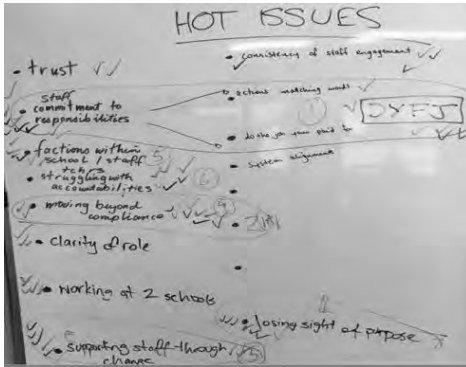 HOT ISSUES
• trust
staff
• commitment to
responsibilities
• factions within
school / staff 5
tchrs
• struggling with
accountabilities 6
• moving beyond
compliance
• clarity of role
• working at 2 schools
• supporting staff through
change
• consistency of staff engagement
actions matching words
1
DYFJ
do the job your paid to
system alignment
• losing sight of purpose